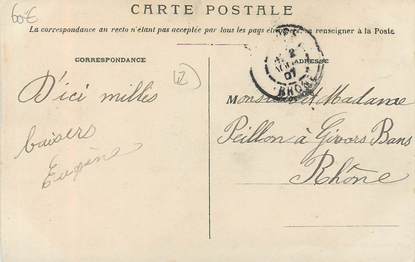 60€
CARTE POSTALE
La correspondance au recto n'étant pas acceptée par tous les pays se renseigner à la Poste.
CORRESPONDANCE
ADRESSE
RHÔNE
D'ici milles
baisers
Eugène
Monsieur et Madame
Peillon à Givors Bans
Rhône